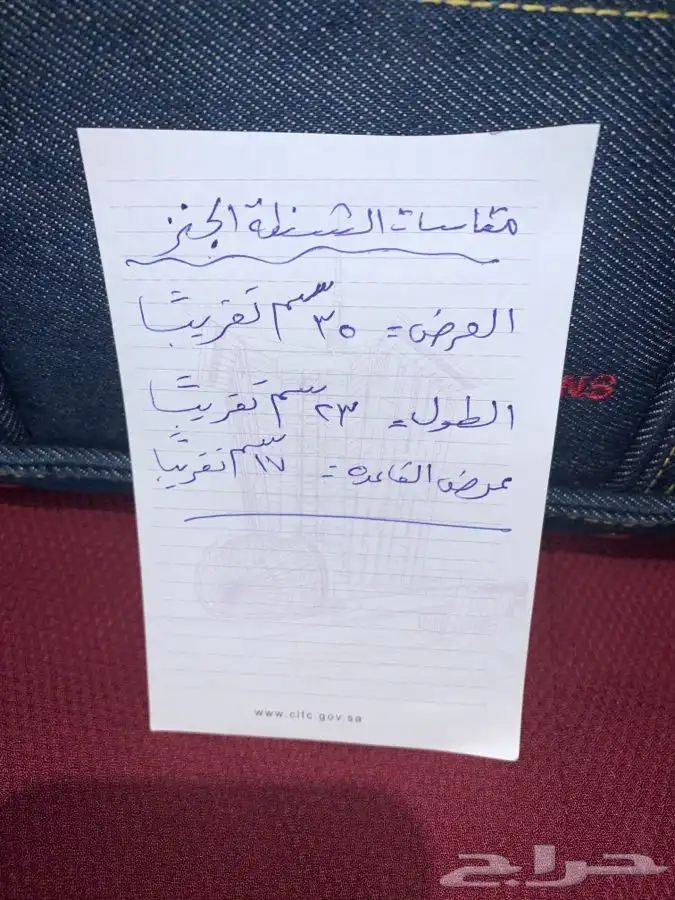 مقاسات الشنطة الجنز
العرض = ٣٥ سم تقريبًا
الطول = ٢٣ سم تقريبًا
عرض القاعده = ١٧ سم تقريبًا
NS
www.citc.gov.sa
حراج